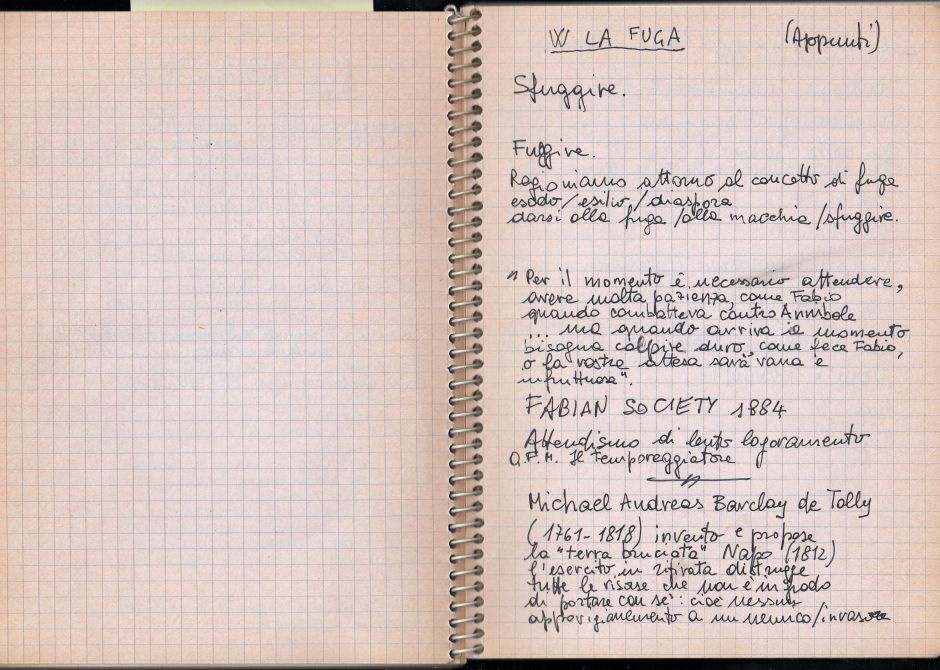 W LA FUGA (Appunti)
Sfuggire.
Fuggire.
Ragioniamo attorno al concetto di fuga
esodo/esilio/diaspora
darsi alla fuga/alla macchia/sfuggire.
"Per il momento è necessario attendere,
avere molta pazienza, come Fabio
quando combatteva contro Annibale
... ma quando arriva il momento
bisogna colpire duro, come fece Fabio,
o la vostra attesa sarà vana e
infruttuosa".
FABIAN SOCIETY 1884
Attendismo di lento logoramento
Q.F.M. Il Temporeggiatore
Michael Andreas Barclay de Tolly
(1761-1818) inventò e propose
la "terra bruciata" Napo (1812)
l'esercito in ritirata distrugge
tutte le risorse che non è in grado
di portare con sé: cioè nessun
approvigionamento a un nemico/invasore